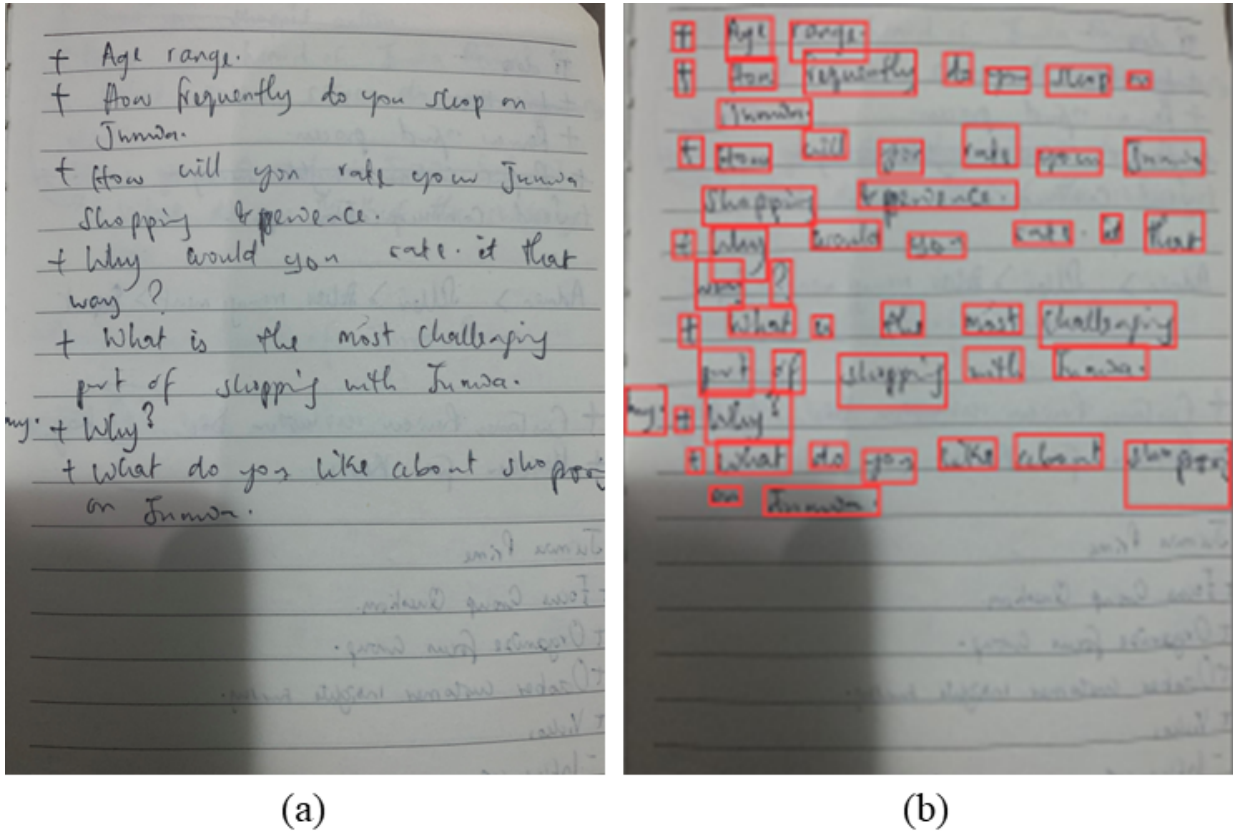 + Age range.
+ How frequently do you shop on
Jumia.
+ How will you rate your Jumia
shopping experience.
+ Why would you rate. it that
way?
+ What is the most challenging
part of shopping with Jumia.
+ Why?
+ What do you like about shopping
on Jumia.
+ Age range.
+ How frequently do you shop on
Jumia.
+ How will you rate your Jumia
shopping experience.
+ Why would you rate. it that
way?
+ What is the most challenging
part of shopping with Jumia.
+ Why?
+ What do you like about shopping
on Jumia.
(a)
(b)